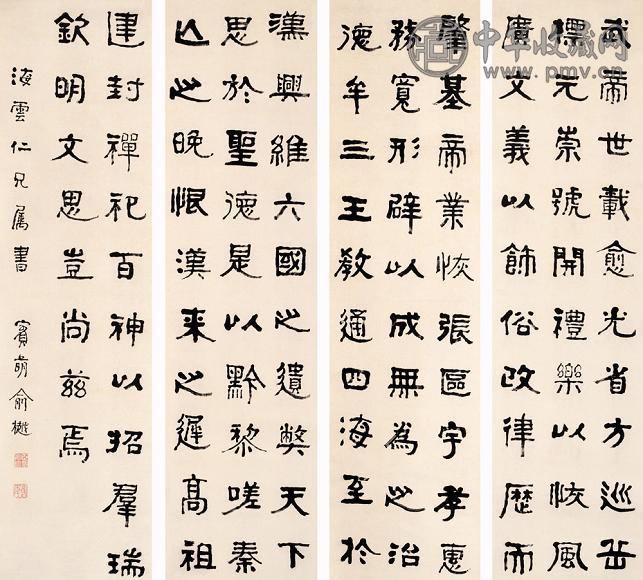 漢興維六國之遺弊天下
思於聖德是以黔黎嗟秦
亡之晚恨漢來之遲高祖
肇基帝業恢張區宇孝惠
務寬形辟以成無為之治
德牟三王教通四海至於
武帝世載愈光省方巡岳
標元崇號開禮樂以恢風
廣文義以飾俗改律歷而
建封禪祀百神以招羣瑞
欽明文思豈尚茲焉
海雲仁兄屬書
賓萌俞樾
中华收藏网
www.pmv.cn